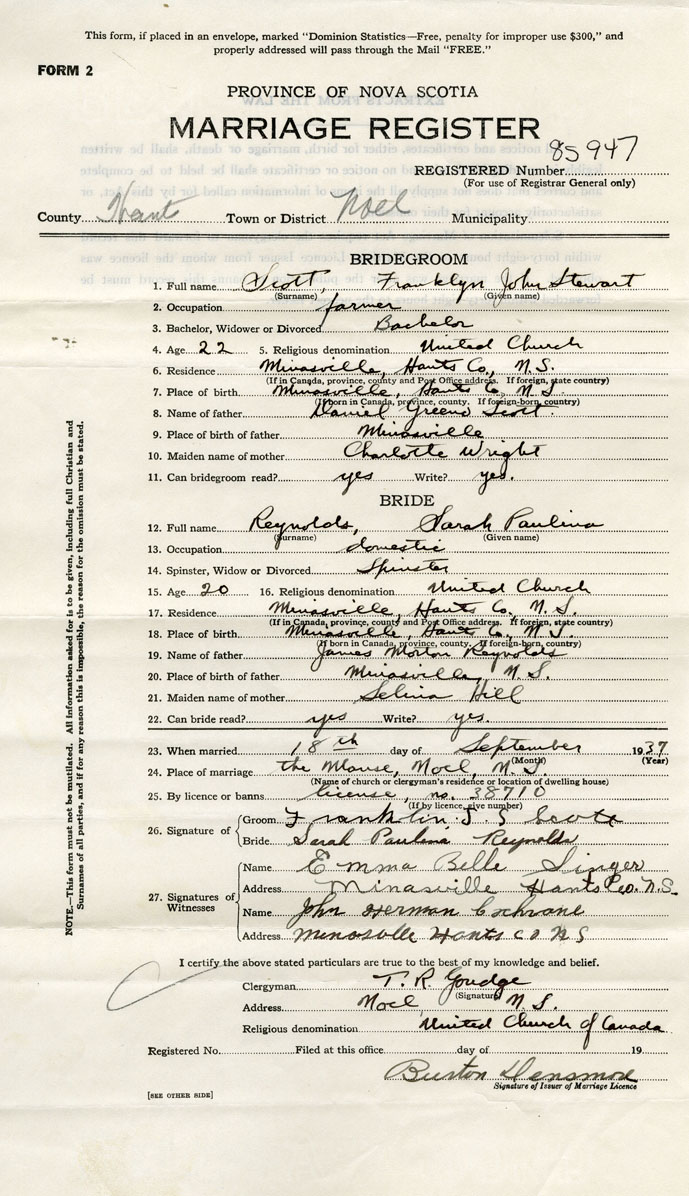 This form, if placed in an envelope, marked "Dominion Statistics—Free, penalty for improper use $300," and
properly addressed will pass through the Mail "FREE."
FORM 2
PROVINCE OF NOVA SCOTIA
MARRIAGE REGISTER
REGISTERED Number 85947
(For use of Registrar General only)
County Hants Town or District Noel Municipality
BRIDEGROOM
1. Full name Scott, Franklyn John Stewart
(Surname) (Given name)
2. Occupation farmer
3. Bachelor, Widower or Divorced Bachelor
4. Age 22 5. Religious denomination United Church
6. Residence Minasville, Hants Co., N.S.
(If in Canada, province, county and Post Office address. If foreign, state country)
7. Place of birth Minasville, Hants Co, N.S.
(If born in Canada, province, county. If foreign-born, country)
8. Name of father Daniel Greeno Scott
9. Place of birth of father Minasville
10. Maiden name of mother Charlotte Wright
11. Can bridegroom read? yes Write? yes.
BRIDE
12. Full name Reynolds, Sarah Paulina
(Surname) (Given name)
13. Occupation domestic
14. Spinster, Widow or Divorced Spinster
15. Age 20 16. Religious denomination United Church
17. Residence Minasville, Hants Co., N.S.
(If in Canada, province, county and Post Office address. If foreign, state country)
18. Place of birth Minasville, Hants Co., N.S.
(If born in Canada, province, county. If foreign-born, country)
19. Name of father James Morton Reynolds
20. Place of birth of father Minasville, N.S.
21. Maiden name of mother Selina Hill
22. Can bride read? yes Write? yes.
23. When married 18th day of September 1937
(Month) (Year)
24. Place of marriage the Manse, Noel, N.S.
(Name of church or clergyman's residence or location of dwelling house)
25. By licence or banns license, no. 38710
(If by licence, give number)
26. Signature of
Groom Franklin J. S Scott
Bride Sarah Paulina Reynolds
27. Signatures of Witnesses
Name Emma Belle Singer
Address Minasville Hants Co. N.S.
Name John Herman Cochrane
Address Minasville Hants Co N S
I certify the above stated particulars are true to the best of my knowledge and belief.
Clergyman T. R. Goudge
(Signature)
Address Noel, N.S.
Religious denomination United Church of Canada
Registered No. Filed at this office day of 19
Burton Densmore
Signature of Issuer of Marriage Licence
[SEE OTHER SIDE]
NOTE.—This form must not be mutilated. All information asked for is to be given, including full Christian and
Surnames of all parties, and if for any reason this is impossible, the reason for the omission must be stated.